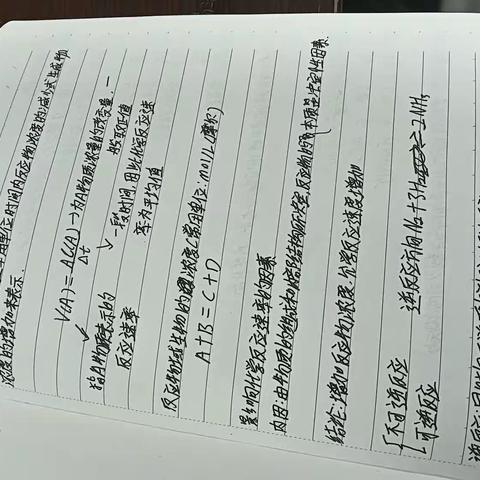 单位时间内反应物浓度的减少或生成物
浓度的增加来表示.
V(A) = Δc(A)/Δt → 为A物质浓度的改变量,一
般取正值
→ 一段时间,因此化学反应速
率为平均值
指A物质表示的
反应速率
反应物或生成物的浓度(常用单位: mol/L(摩尔)
A+B=C+D
影响化学反应速率的因素
内因:由物质的组成和内部结构所决定,反应物的本质是决定性因素.
结论:增加反应物浓度,化学反应速度增加
不可逆反应
可逆反应
逆反应方向 N₂+3H₂ ⇌ 2NH₃